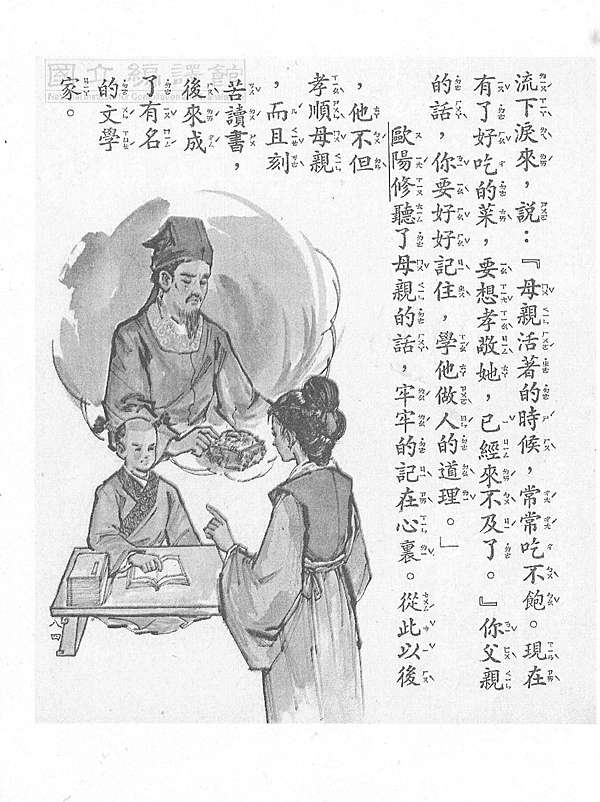 國立編譯館
流下淚來，說：『母親活著的時候，常常吃不飽。現在
有了好吃的菜，要想孝敬她，已經來不及了。』你父親
的話，你要好好記住，學他做人的道理。」
歐陽修聽了母親的話，牢牢的記在心裏。從此以後
，他不但
孝順母親
，而且刻
苦讀書，
後來成
了有名
的文學
家。
八四